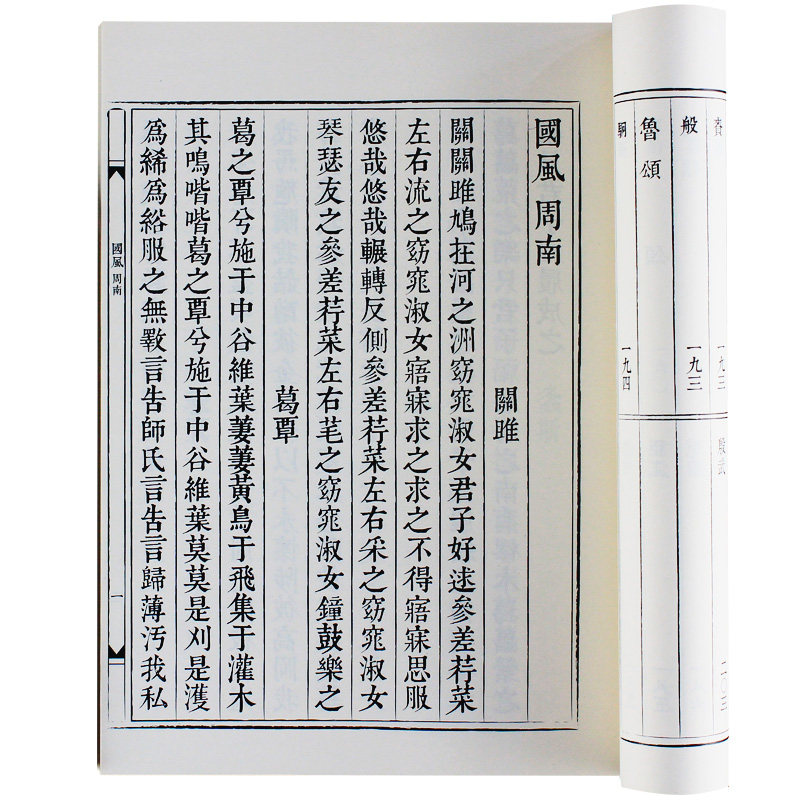 賚 一九三
般 一九三
魯頌
駉 一九四
殷武 二〇三
國風 周南
關雎
關關雎鳩在河之洲窈窕淑女君子好逑參差荇菜
左右流之窈窕淑女寤寐求之求之不得寤寐思服
悠哉悠哉輾轉反側參差荇菜左右采之窈窕淑女
琴瑟友之參差荇菜左右芼之窈窕淑女鐘鼓樂之
葛覃
葛之覃兮施于中谷維葉萋萋黃鳥于飛集于灌木
其鳴喈喈葛之覃兮施于中谷維葉莫莫是刈是濩
爲絺爲綌服之無斁言告師氏言告言歸薄汚我私
國風 周南 一